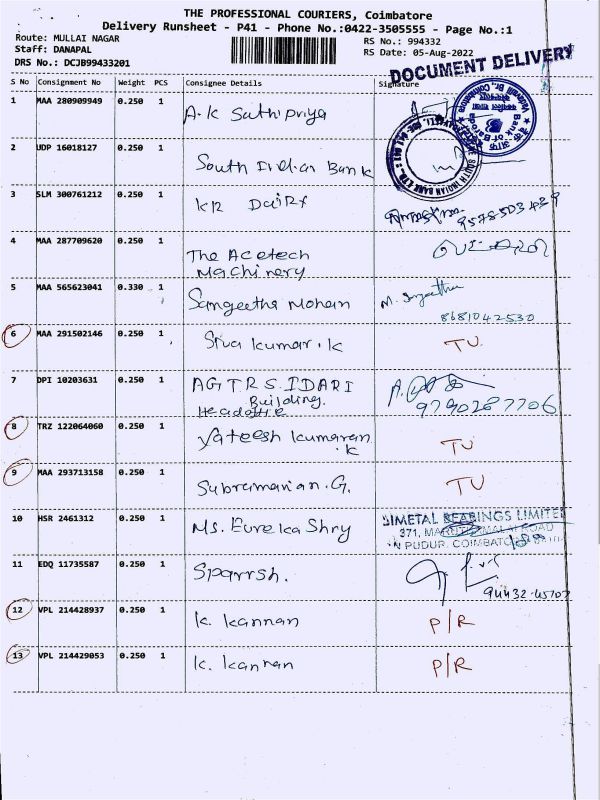 THE PROFESSIONAL COURIERS, Coimbatore
Delivery Runsheet - P41 - Phone No.:0422-3505555 - Page No.:1
Route: MULLAI NAGAR
Staff: DANAPAL
DRS No.: DCJB99433201
RS No.: 994332
RS Date: 05-Aug-2022
DOCUMENT DELIVERY
S No Consignment No Weight PCS Consignee Details Signature
1 MAA 280909949 0.250 1 A.K Sathipriya
Bank of Baroda
2 UDP 16018127 0.250 1 South Indian Bank
SOUTH INDIAN BANK LTD.
3 SLM 300761212 0.250 1 KR Dairy
4 MAA 287709620 0.250 1 The Acetech
Machinery
5 MAA 565623041 0.330 1 Sangeetha Mohan
8681042530
6 MAA 291502146 0.250 1 Siva kumar.K TU
7 DPI 10203631 0.250 1 AGTRS.IDARI
Building.
9790287706
8 TRZ 122064060 0.250 1 Yateesh Kumaran
.K
TU
9 MAA 293713158 0.250 1 Subramanian.G. TU
10 HSR 2461312 0.250 1 Ms. Eureka Shry
BIMETAL BEARINGS LIMITED
371, ROAD
PUDUR, COIMBATORE
11 EDQ 11735587 0.250 1 Sparrsh.
94432-45707
12 VPL 214428937 0.250 1 K. Kannan P/R
13 VPL 214429053 0.250 1 K. Kannan P/R